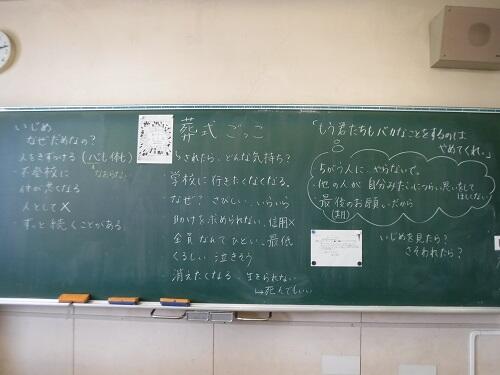 いじめ
なぜだめなの?
人をきずつける(心も体も)
なおらない
・不登校に
仲が悪くなる
人として×
・ずっと続くことがある
葬式ごっこ
されたら、どんな気持ち?
学校に行きたくなくなる。
・なぜ? さびしい、いらいら
助けを求められない、信用×
全員なんてひどい、最低
くるしい 泣きそう
消えたくなる 生きられない
↳死んでしまい
「もう君たちもバカなことをするのは
やめてくれ。」
ちがう人に、やらないで。
・他の人が自分みたいにつらい思いをして
ほしくない
・最後のお願いだから
いじめを見たら?
さそわれたら?